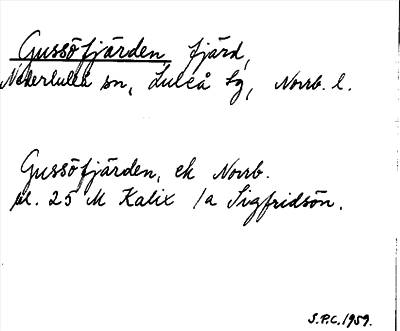 Gussöfjärden fjärd,
Nederluleå sn, Luleå tg, Norrb. l.
Gussöfjärden, ek Norrb.
bl. 25 M Kalix /a Sigfridsön.
S.P.C. 1959.